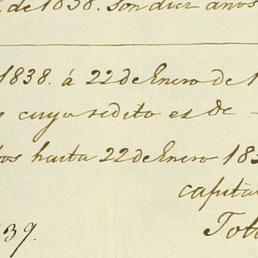 de 1838. Son diez años
1838. á 22 de Enero de 1
cuyo redito es de
hasta 22 de Enero 183
capita
39. Tot